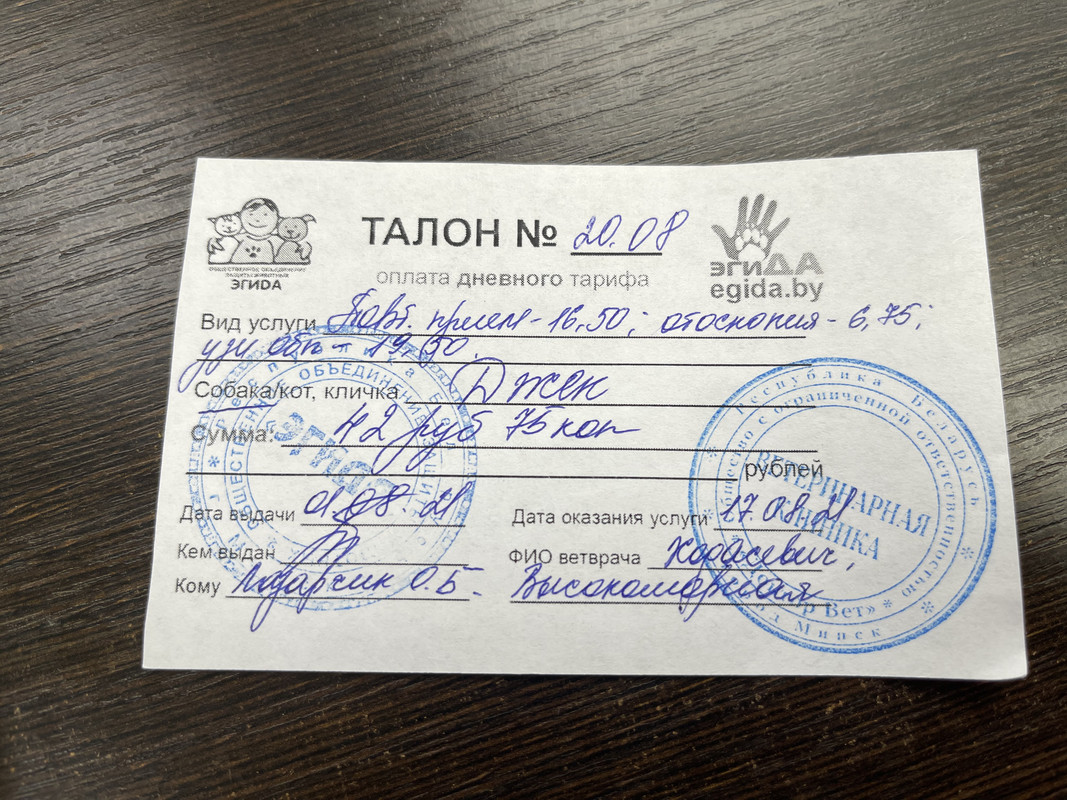 ОБЩЕСТВЕННОЕ ОБЪЕДИНЕНИЕ
ЗАЩИТЫ ЖИВОТНЫХ
ЭГИDA
ТАЛОН № 20.08
оплата дневного тарифа
эгиДА
egida.by
Вид услуги Повт. прием - 16,50; отоскопия - 6,75;
узи обп - 19,50.
Собака/кот, кличка Джек
Сумма: 42 руб 75 коп
рублей
Дата выдачи 01.08.21
Дата оказания услуги 17.08.21
Кем выдан
ФИО ветврача Ходасевич,
Кому О.Б.
Высокоморная
Республика Беларусь
общество с ограниченной ответственностью
ВЕТЕРИНАРНАЯ
КЛИНИКА
Вет»
город Минск
ОБЪЕДИНЕНИЕ
ЭГИДА